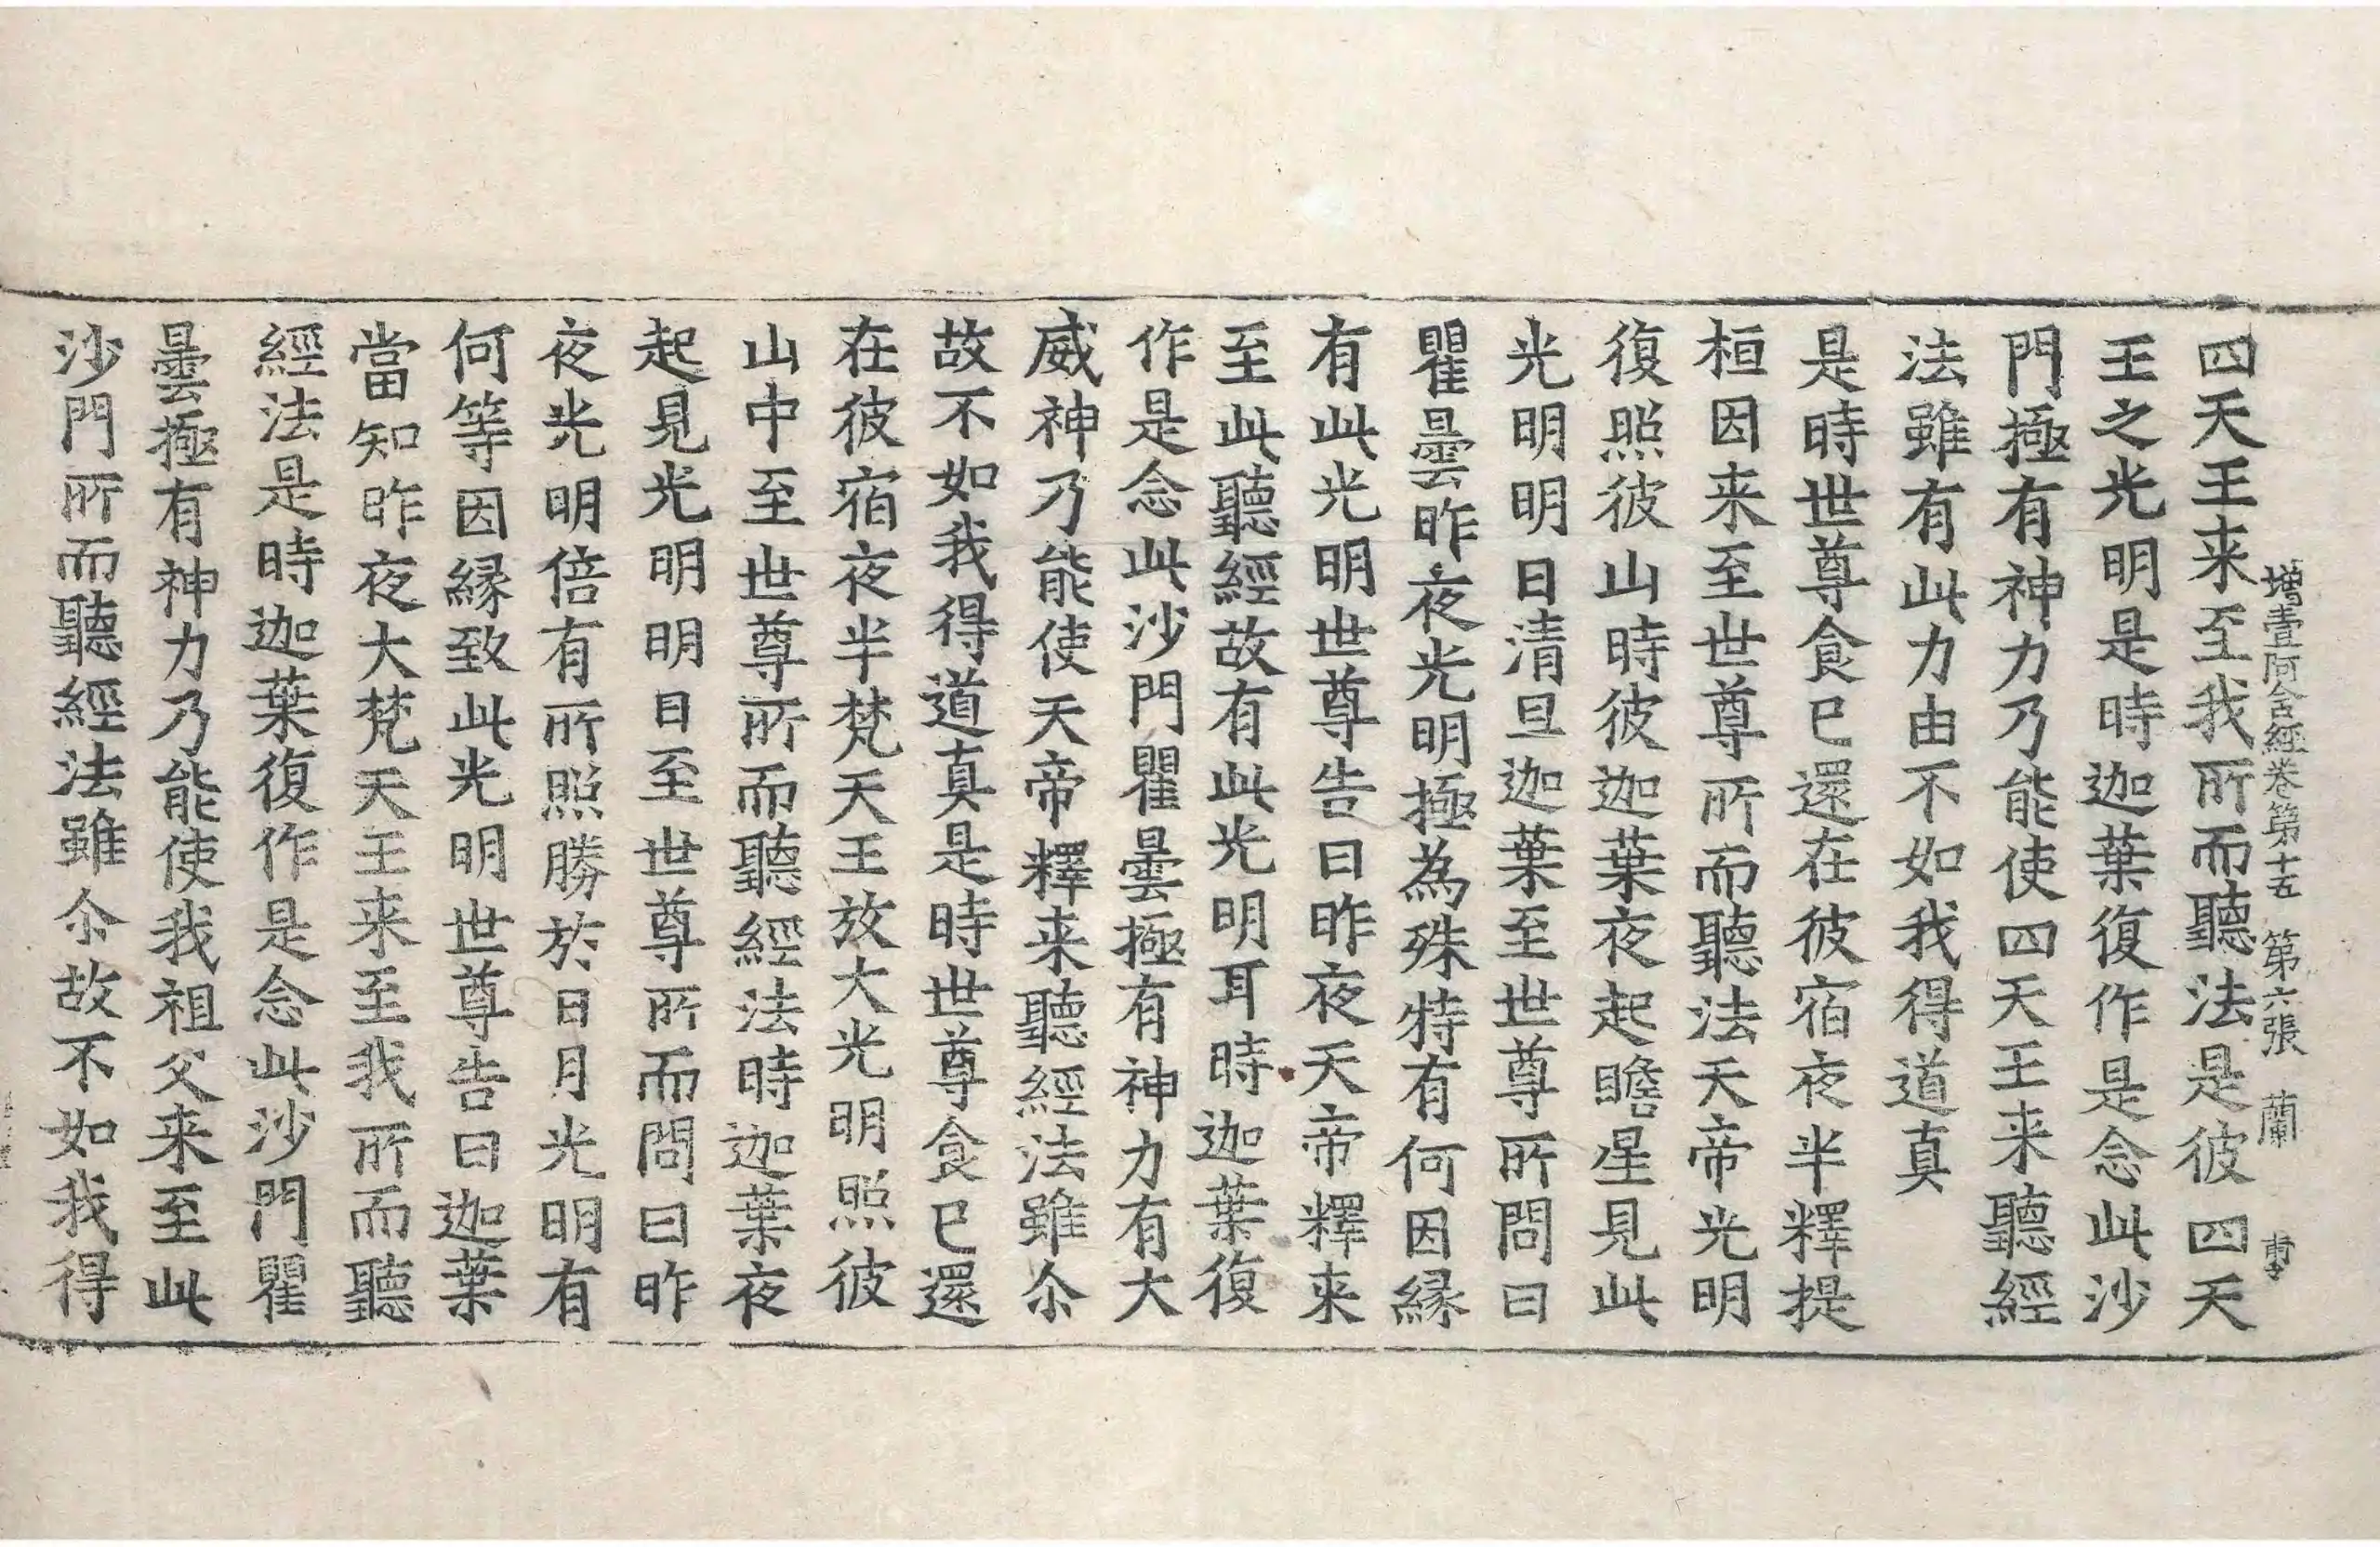 增壹阿含經卷第十五　第六張　蘭
四天王来至我所而聽法是彼四天
王之光明是時迦葉復作是念此沙
門極有神力乃能使四天王来聽經
法雖有此力由不如我得道真
是時世尊食已還在彼宿夜半釋提
桓因来至世尊所而聽法天帝光明
復照彼山時彼迦葉夜起瞻星見此
光明明日清旦迦葉至世尊所問曰
瞿曇昨夜光明極為殊特有何因縁
有此光明世尊告曰昨夜天帝釋来
至此聽經故有此光明耳時迦葉復
作是念此沙門瞿曇極有神力有大
威神乃能使天帝釋来聽經法雖尒
故不如我得道真是時世尊食已還
在彼宿夜半梵天王放大光明照彼
山中至世尊所而聽經法時迦葉夜
起見光明明日至世尊所而問曰昨
夜光明倍有所照勝於日月光明有
何等因縁致此光明世尊告曰迦葉
當知昨夜大梵天王来至我所而聽
經法是時迦葉復作是念此沙門瞿
曇極有神力乃能使我祖父来至此
沙門所而聽經法雖尒故不如我得